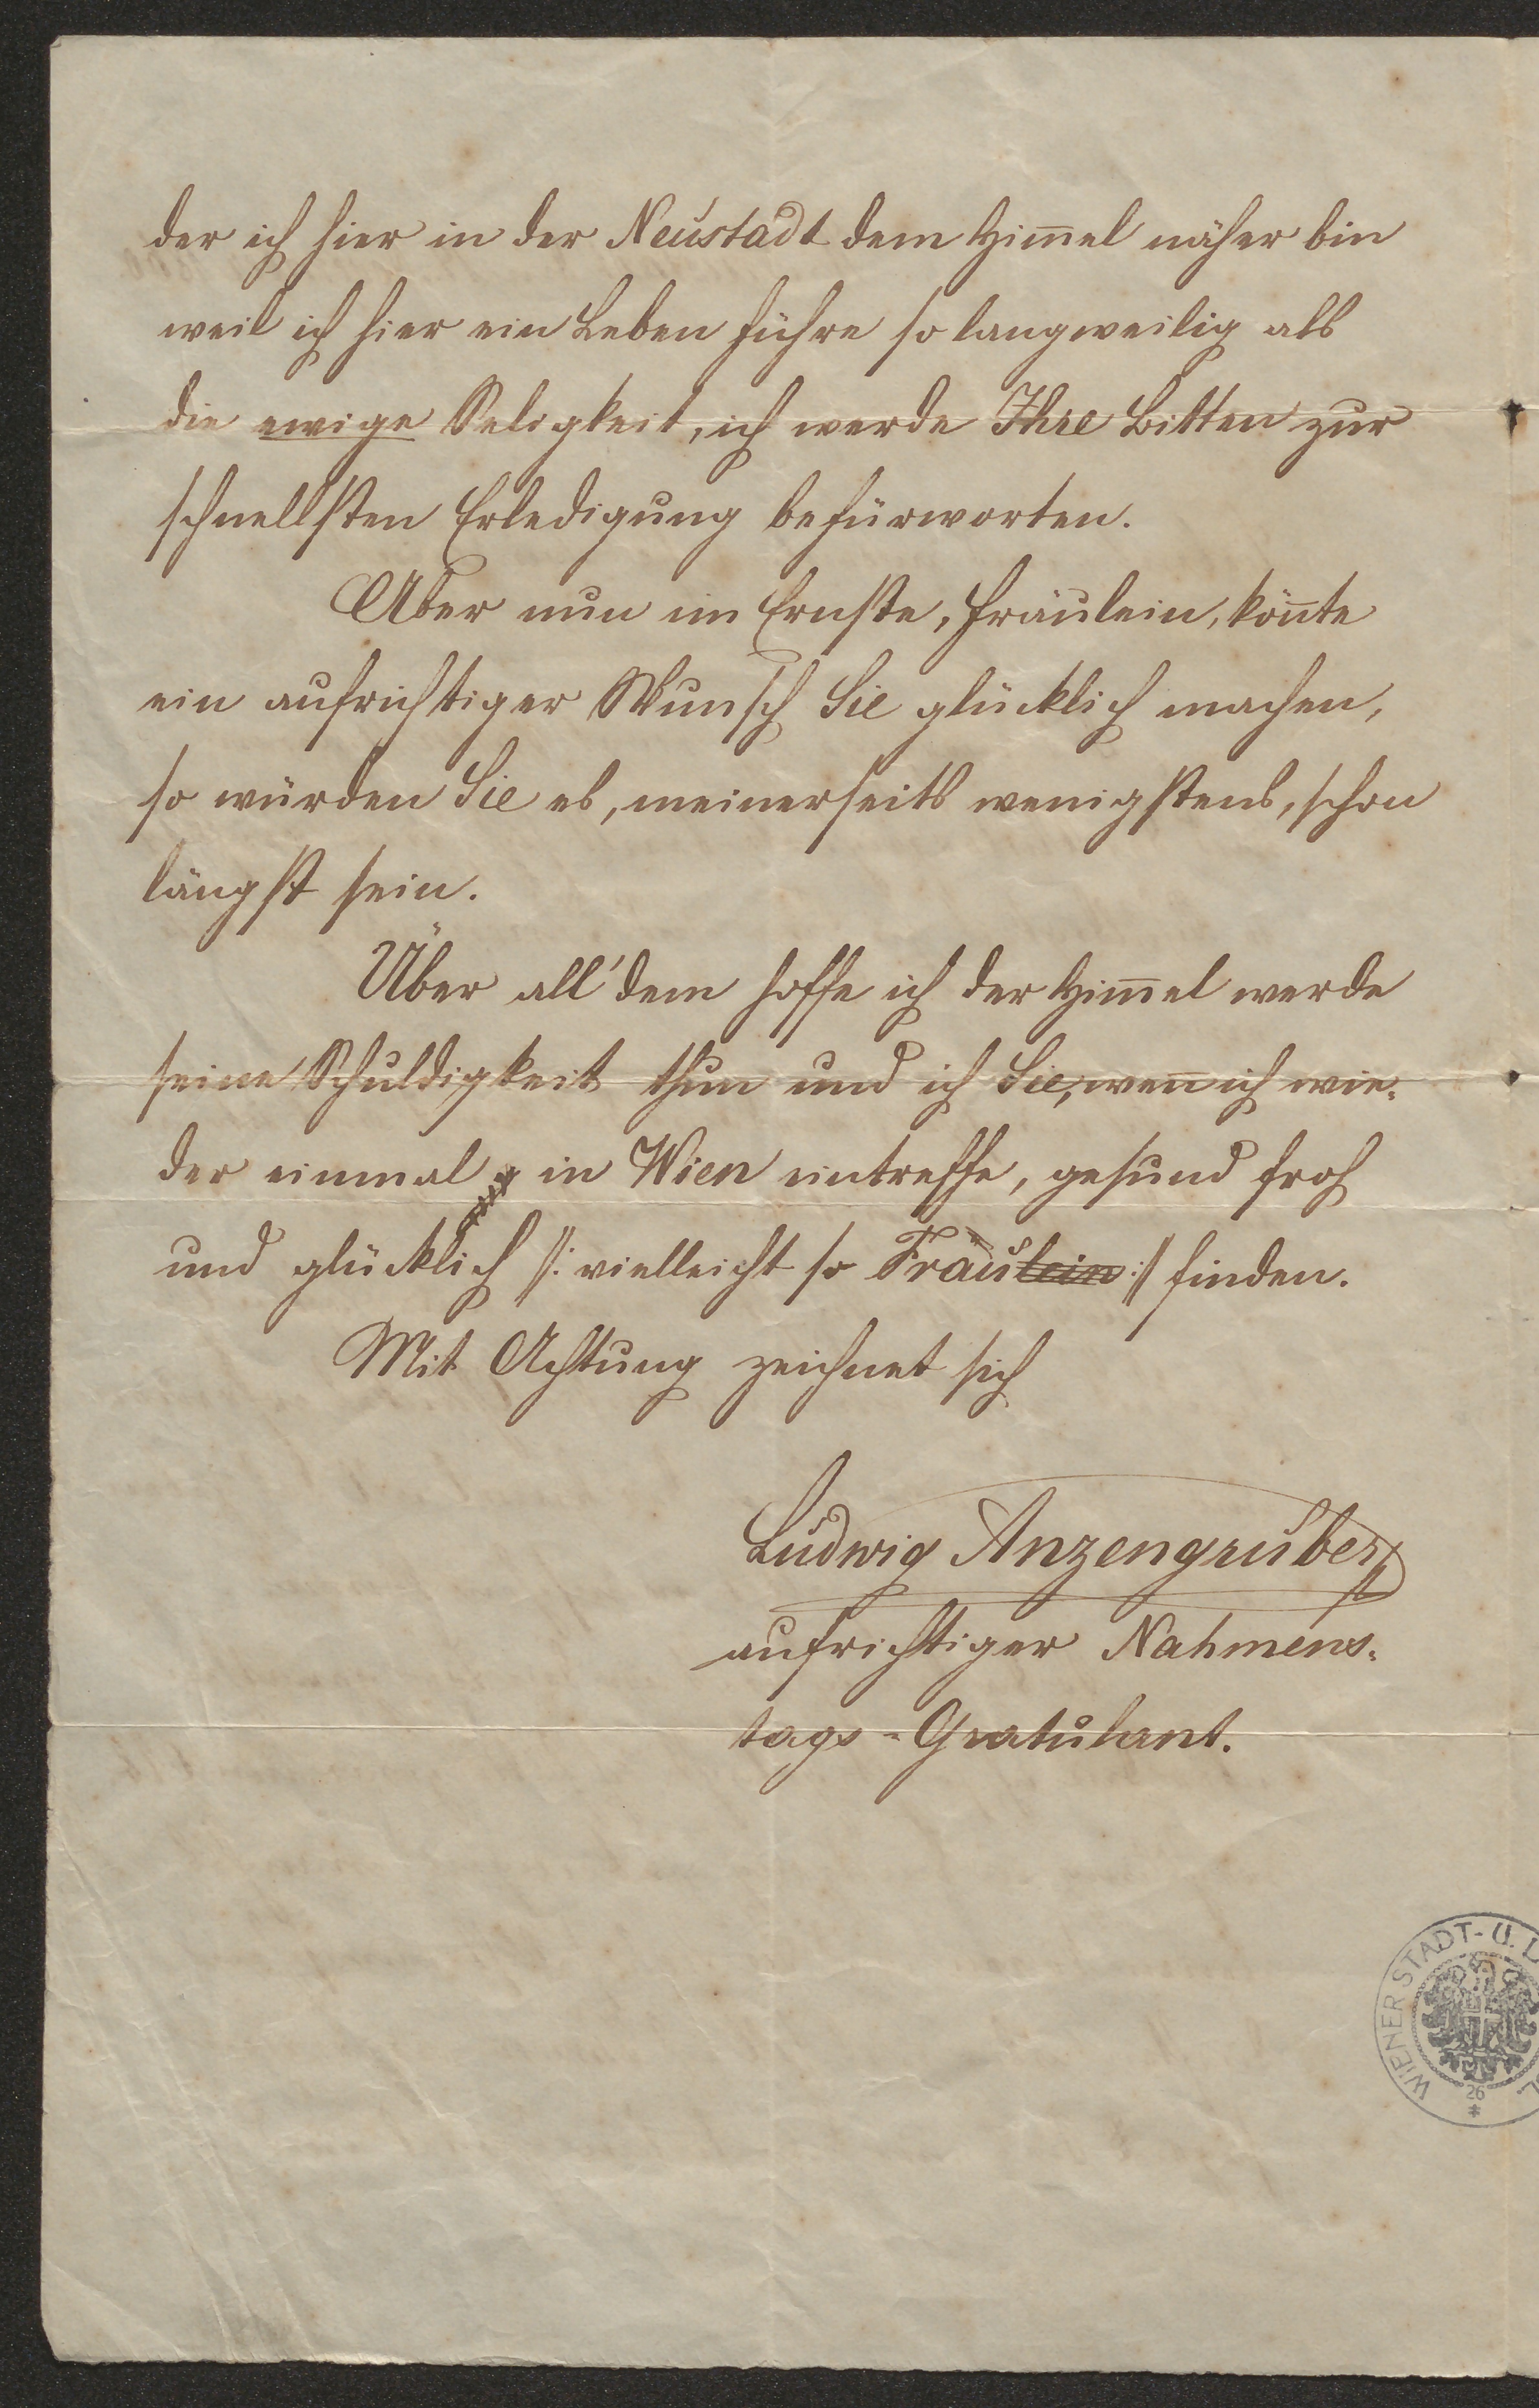 der ich hier in der Neustadt dem Him̅el näher bin
weil ich hier ein Leben führe so langweilig als
die ewige Seligkeit, ich werde Ihre Bitten zur
schnellsten Erledigung befürworten.
Aber nun im Ernste, Fräulein, kön̅te
ein aufrichtiger Wunsch Sie glücklich machen,
so würden Sie es, meinerseits wenigstens, schon
längst sein.
Über all' dem hoffe ich der Him̅el werde
seine Schuldigkeit thun und ich Sie, wen̅ ich wie-
der einmal in Wien eintreffe, gesund froh
und glücklich /: vielleicht so Fräulein :/ finden.
Mit Achtung zeichnet sich
Ludwig Anzengruber
aufrichtiger Nahmens-
tags-Gratulant.
WIENER STADT- U. L
26